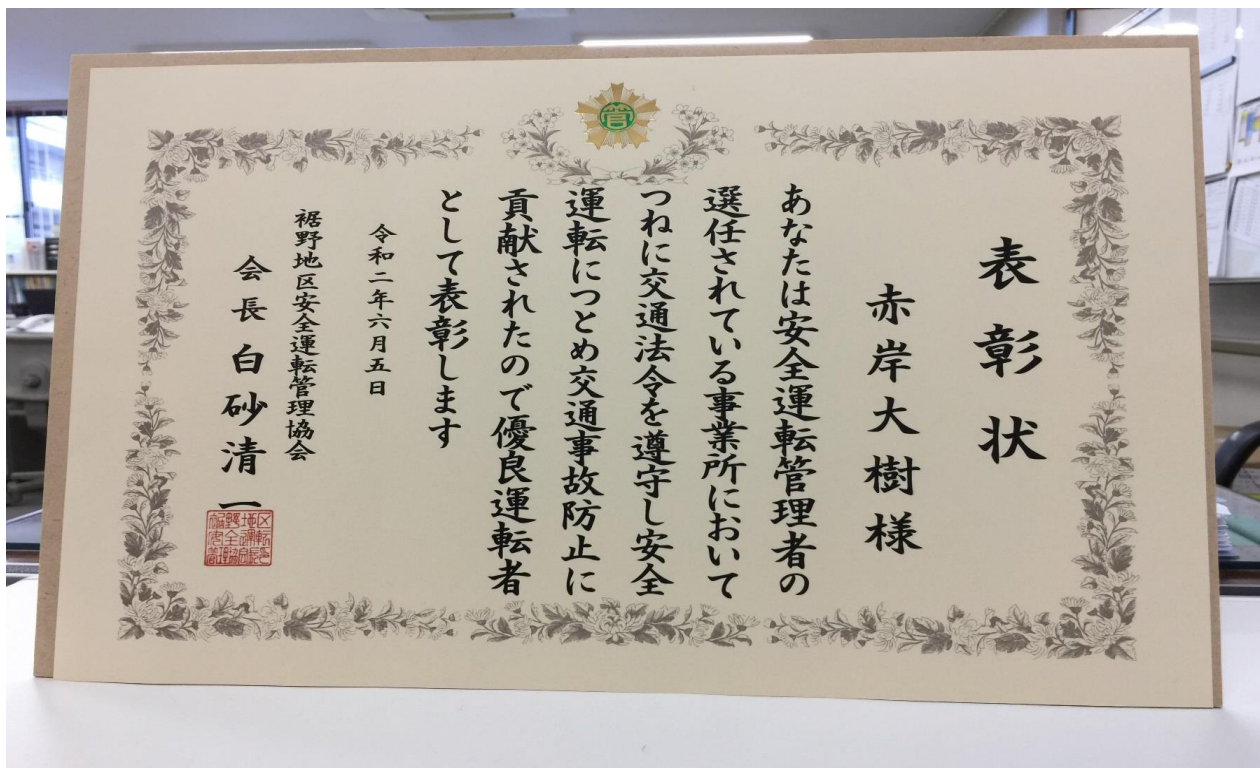 管
表彰状
赤岸大樹様
あなたは安全運転管理者の
選任されている事業所において
つねに交通法令を遵守し安全
運転につとめ交通事故防止に
貢献されたので優良運転者
として表彰します
令和二年六月五日
裾野地区安全運転管理協会
会長白砂清一